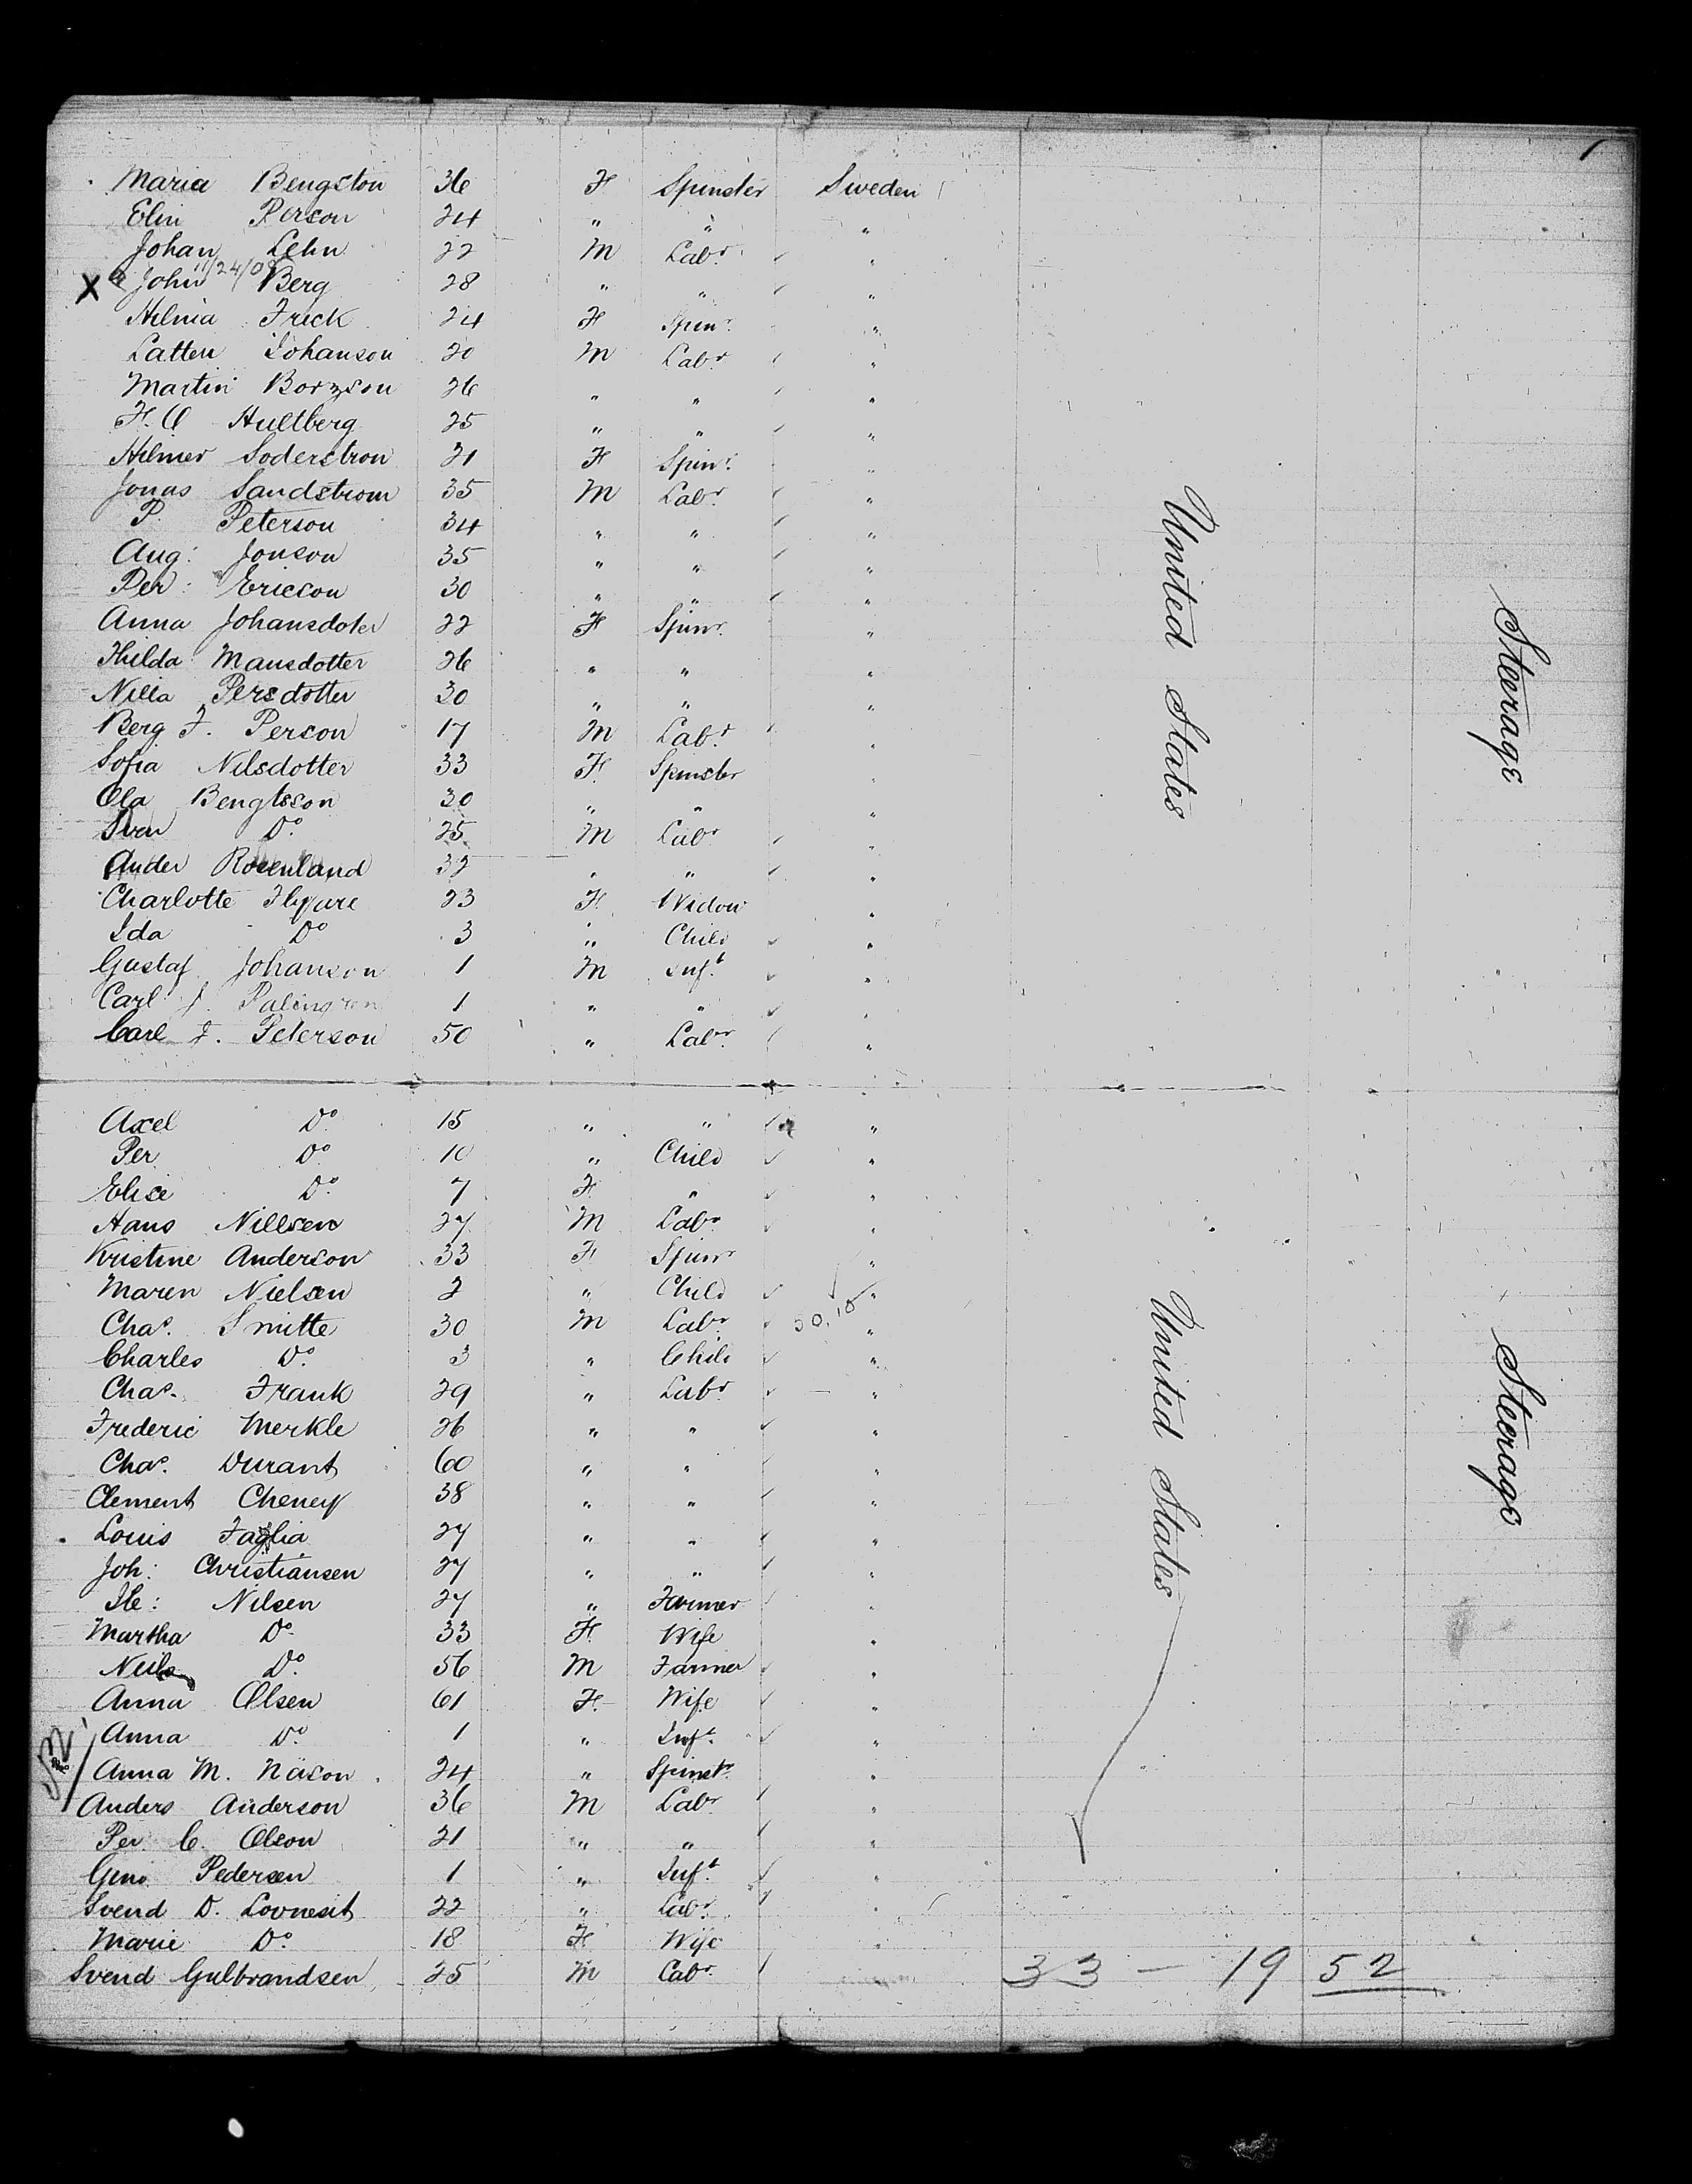 Maria Bengston 36 F Spinster Sweden
Elin Person 24 " " "
Johan Lehn 22 M Labr. "
11/24/08
X John Berg 28 " " "
Hilma Frick 24 F Spinr. "
Latten Johanson 20 M Labr. "
Martin Borzson 26 " " "
F. O Hultberg 25 " " "
Hilmer Soderstron 21 F Spinr. "
Jonas Sandstrom 35 M Labr. "
P. Peterson 34 " " "
Aug: Jonson 35 " " "
Per: Ericson 30 " " "
Anna Johansdoter 22 F Spinr. "
Hilda Mansdotter 26 " " "
Nilla Persdotter 30 " " "
Berg F. Person 17 M Labr. "
Sofia Nilsdotter 33 F Spinster "
Ola Bengtsson 30 " " "
Sven Do. 25 M Labr "
Ander Rosenland 32 " " "
Charlotte 23 F. Widow "
Ida Do 3 " Child "
Gustaf Johanson 1 M Inft. "
Carl J. Palmgren 1 " " "
Carl J. Peterson 50 " Labr. "
Axel Do. 15 " " "
Per Do. 10 " Child "
Elise Do. 7 F. " "
Hans Nillsen 27 M Labr "
Kristine Anderson 33 F Spinr "
Maren Nielsen 2 " Child "
Chas. Smitte 30 M Labr. "
Charles Do. 3 " Child "
Chas. Frank 29 " Labr "
Frederic Merkle 26 " " "
Chas. Durant 60 " " "
Clement Cheney 38 " " "
Louis Faglia 27 " " "
Joh: Christiansen 27 " " "
Nilsen 27 " Farmer "
Martha Do. 33 F. Wife "
Neils Do. 56 M Farmer "
Anna Olsen 61 F. Wife "
Anna Do. 1 " Inft. "
Anna M. Näson 24 " Spinstr. "
Anders Anderson 36 M Labr "
Per C. Olson 21 " " "
Gino Pedersen 1 " Inft. "
Svend D. Lovnesit 22 " Labr. "
Marie Do. 18 F Wife "
Svend Gulbrandsen 25 M Labr.
United States
Steerage
United States
Steerage
33 - 19 52